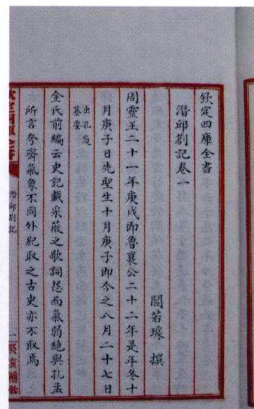 欽定四庫全書
潛邱劄記卷一
閻若璩 撰
周靈王二十一年庚戌即魯襄公二十二年是年冬十
月庚子日先聖生十月庚子即今之八月二十七日
出孔庭
纂要
金氏前編云史記載采薇之歌詞怨而氣弱絶與孔孟
所言夷齊氣象不同外紀取之古史亦不取焉
潛邱劄記
一